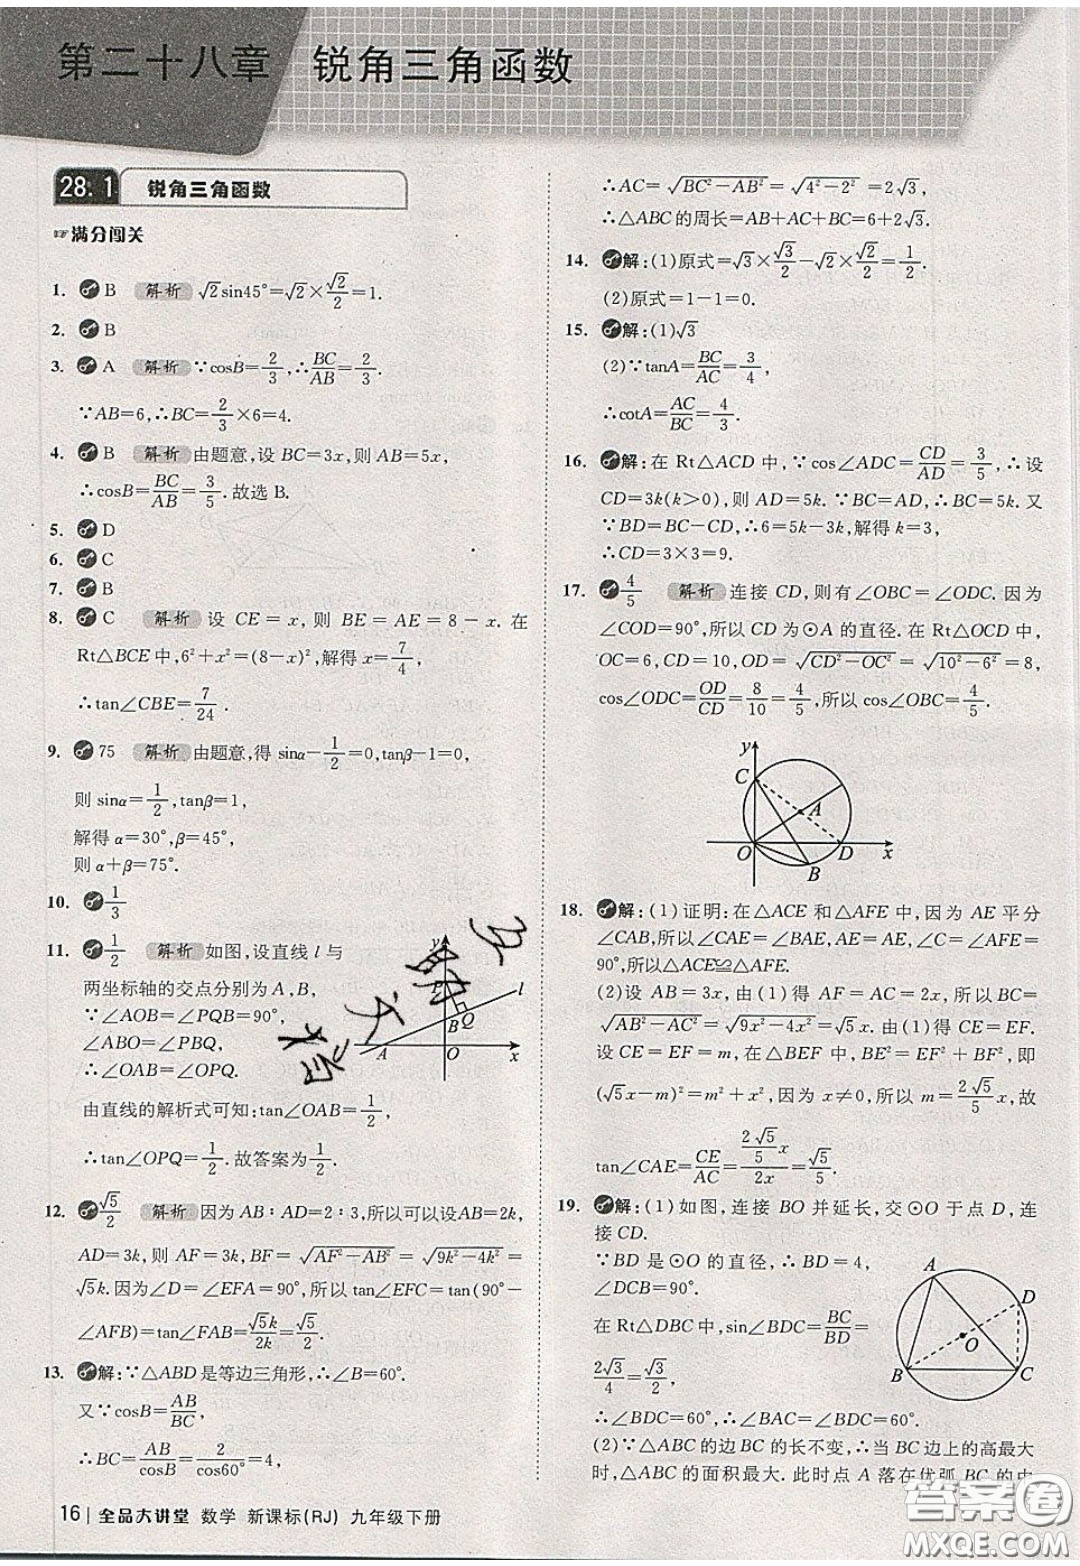 第二十八章 锐角三角函数
28.1 锐角三角函数
☞满分闯关
1. B 解析 √2sin45°=√2×√2/2=1.
2. B
3. A 解析 ∵cosB=2/3,∴BC/AB=2/3.
∵AB=6,∴BC=2/3×6=4.
4. B 解析 由题意,设 BC=3x,则 AB=5x,
∴cosB=BC/AB=3/5.故选 B.
5. D
6. C
7. B
8. C 解析 设 CE=x,则 BE=AE=8-x.在
Rt△BCE中,6²+x²=(8-x)²,解得 x=7/4,
∴tan∠CBE=7/24.
9. 75 解析 由题意,得 sinα-1/2=0,tanβ-1=0,
则 sinα=1/2,tanβ=1,
解得 α=30°,β=45°,
则 α+β=75°.
10. 1/3
11. 1/2 解析 如图,设直线 l 与
两坐标轴的交点分别为 A,B,
∵∠AOB=∠PQB=90°,
∠ABO=∠PBQ,
∴∠OAB=∠OPQ.
由直线的解析式可知:tan∠OAB=1/2,
∴tan∠OPQ=1/2.故答案为1/2.
y P l B Q A O x
12. √5/2 解析 因为 AB∶AD=2∶3,所以可以设AB=2k,
AD=3k,则 AF=3k,BF=√(AF²-AB²)=√(9k²-4k²)=
√5k.因为∠D=∠EFA=90°,所以 tan∠EFC=tan(90°-
∠AFB)=tan∠FAB=√5k/2k=√5/2.
13. 解:∵△ABD是等边三角形,∴∠B=60°.
又∵cosB=AB/BC,
∴BC=AB/cosB=2/cos60°=4,
∴AC=√(BC²-AB²)=√(4²-2²)=2√3,
∴△ABC的周长=AB+AC+BC=6+2√3.
14. 解:(1)原式=√3×√3/2-√2×√2/2=1/2.
(2)原式=1-1=0.
15. 解:(1)√3
(2)∵tanA=BC/AC=3/4,
∴cotA=AC/BC=4/3.
16. 解:在 Rt△ACD 中,∵cos∠ADC=CD/AD=3/5,∴设
CD=3k(k>0),则 AD=5k.∵BC=AD,∴BC=5k.又
∵BD=BC-CD,∴6=5k-3k,解得 k=3,
∴CD=3×3=9.
17. 4/5 解析 连接 CD,则有∠OBC=∠ODC.因为
∠COD=90°,所以 CD 为⊙A 的直径.在 Rt△OCD 中,
OC=6,CD=10,OD=√(CD²-OC²)=√(10²-6²)=8,
cos∠ODC=OD/CD=8/10=4/5,所以 cos∠OBC=4/5.
y C A O D x B
18. 解:(1)证明:在△ACE 和△AFE 中,因为 AE 平分
∠CAB,所以∠CAE=∠BAE,AE=AE,∠C=∠AFE=
90°,所以△ACE≌△AFE.
(2)设 AB=3x,由(1)得 AF=AC=2x,所以 BC=
√(AB²-AC²)=√(9x²-4x²)=√5x.由(1)得 CE=EF.
设 CE=EF=m,在△BEF 中,BE²=EF²+BF²,即
(√5x-m)²=m²+x².因为 x≠0,所以 m=2√5/5x,故
tan∠CAE=CE/AC=(2√5/5x)/2x=√5/5.
19. 解:(1)如图,连接 BO 并延长,交⊙O 于点 D,连
接 CD.
∵BD 是⊙O 的直径,∴BD=4,
∠DCB=90°.
在 Rt△DBC 中,sin∠BDC=BC/BD=
2√3/4=√3/2,
∴∠BDC=60°,∴∠BAC=∠BDC=60°.
(2)∵△ABC 的边 BC 的长不变,∴当 BC 边上的高最大
时,△ABC 的面积最大.此时点 A 落在优弧 BC 的中
A D O B C
16 全品大讲堂 数学 新课标(RJ) 九年级下册
答案圈
MXQE.COM